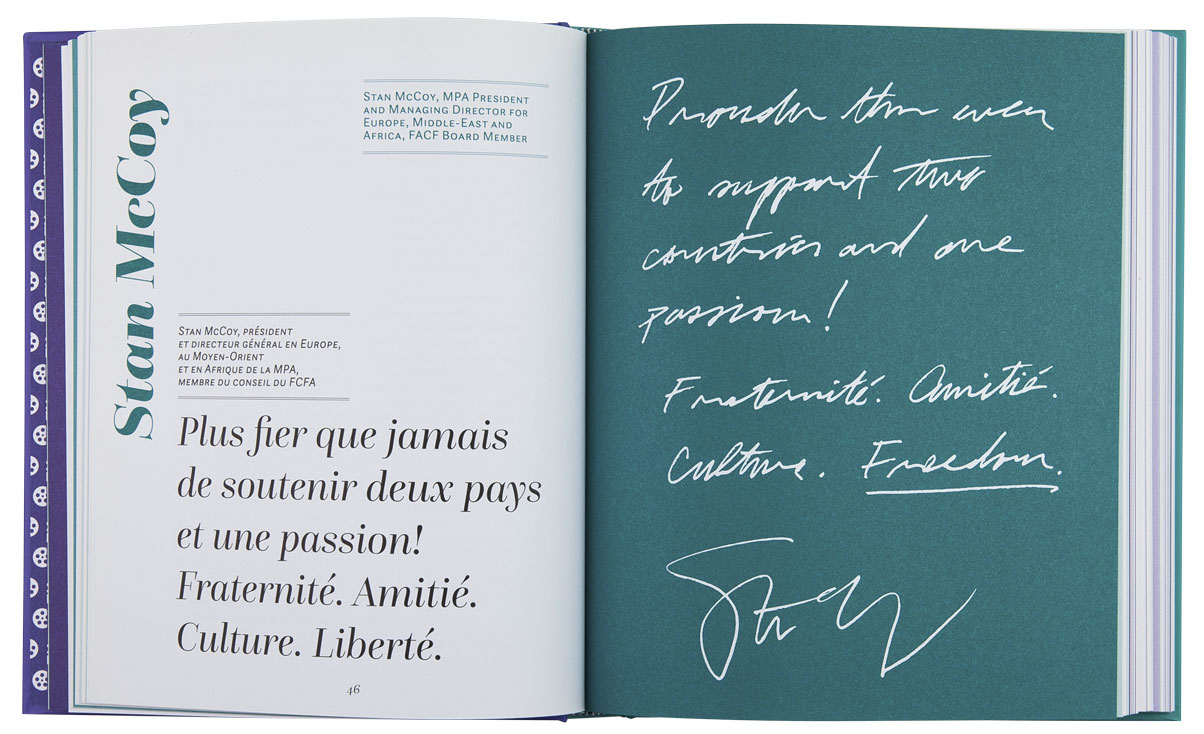 Stan McCoy
Stan McCoy, MPA President
and Managing Director for
Europe, Middle-East and
Africa, FACF Board Member
Stan McCoy, président
et directeur général en Europe,
au Moyen-Orient
et en Afrique de la MPA,
membre du conseil du FCFA
Plus fier que jamais
de soutenir deux pays
et une passion!
Fraternité. Amitié.
Culture. Liberté.
46
Prouder than ever
to support two
countries and one
passion!
Fraternité. Amitié.
Culture. Freedom.